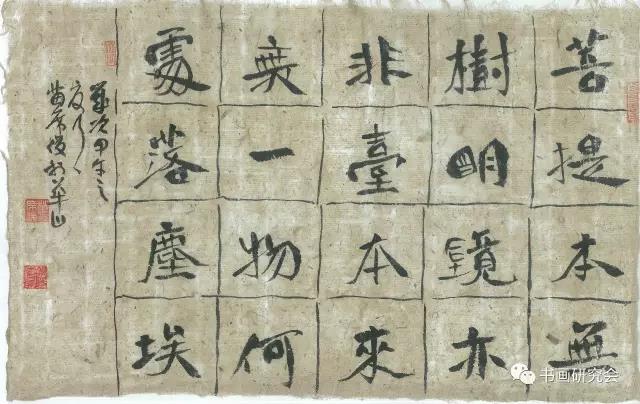 菩提本無
樹明鏡亦
非臺本來
無一物何
處落塵埃
歲次甲午之
书画研究会